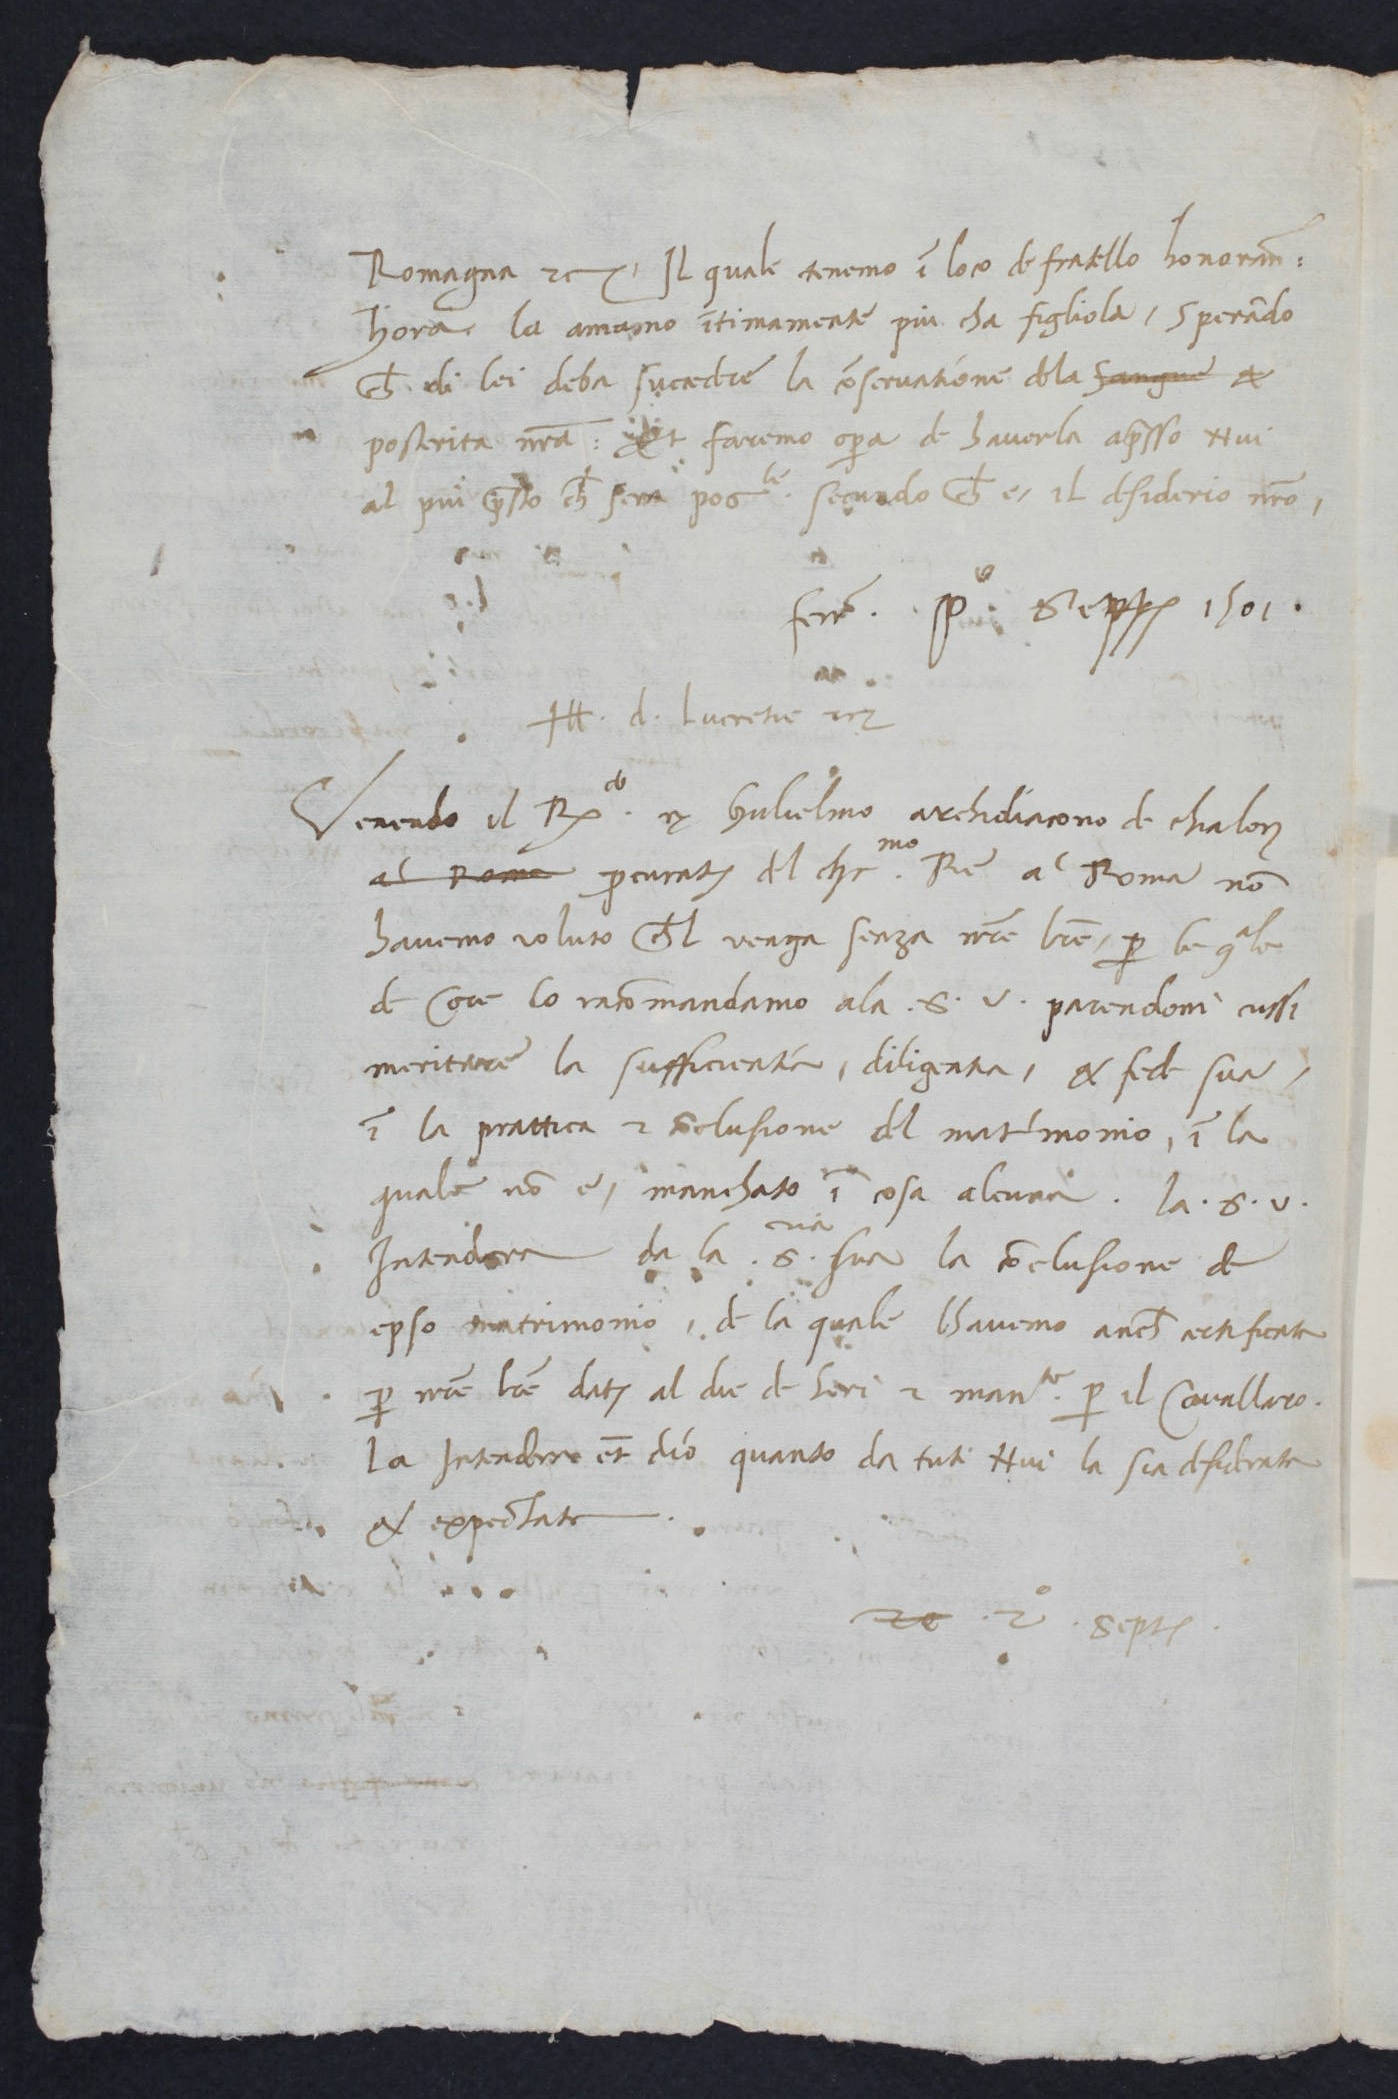 Romagna ⁊c, Il quale tenemo ī loco de fratello honorañ:
hora, la amamo ītimamente piu cha figliola, Sperãdo
ch̃ di lei deba sucedere la cõservatione dela sangue &
posterita nr̃a: Et faremo oꝑa de haverla apresso Nui
al piu presto ch̃ sera possle. secundo ch̃ e, il desiderio nr̃o,
ferr̃. po. Sept 1501.
Ill. d. Lucretie ⁊c
Venendo il Rdo. Gulielmo archidiacono de chialon
al Roma ꝓcurat del chrmo. Re a Roma nõ
havemo voluto ch̃l venga senza nr̃e lr̃e, ꝑ le qale
de Core lo racõmandamo ala .S. V. parendoni cussi
meritare la sufficientia, diligentia, & fede sua,
ī la prattica ⁊ cõclusione del matrimonio, ī la
quale nõ e, manchato ī cosa alcuna. la .S. V.
Intendera da la .S. sua la cõclusione de
epso matrimonio, de la quale lhavemo anch̃ certificata
ꝑ nr̃e lr̃e dat al die de heri ⁊ mante. ꝑ il Cavallaro.
La Intendera et̃ dio quanto da tuti Nui la sia desiderata
& expectata.
2o. Sept.